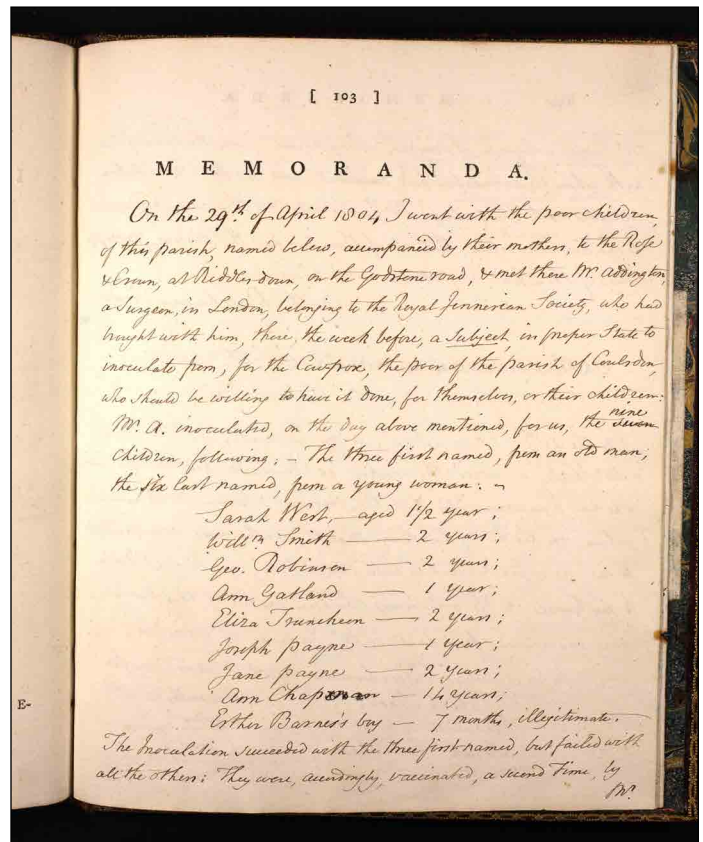 [ 103 ]
MEMORANDA.
On the 29th of April 1804 I went with the poor children,
of this parish, named below, accompanied by their mothers, to the Rose
& Crown, at Riddles-down, on the Godstone road, & met there Mr. Addington,
a Surgeon, in London, belonging to the Royal Jennerian Society, who had
brought with him, there, the week before, a Subject in proper State to
inoculate from, for the Cowpox, the poor of the parish of Coulsdon,
who should be willing to have it done, for themselves, or their children:
Mr. A. inoculated, on the day above mentioned, for us, the seven nine
children, following; – The three first named, from an old man;
the six last named, from a young woman: –
Sarah West, – aged 1 1/2 year;
Willm Smith — 2 years;
Geo. Robinson — 2 years;
Ann Gatland — 1 year;
Eliza Truncheon — 2 years;
Joseph payne — 1 year;
Jane payne — 2 years;
Ann Chapman – 14 years;
Esther Barnes's boy – 7 months, illegitimate.
The Inoculation succeeded with the three first named, but failed with
all the others: They were, accordingly, vaccinated, a second Time, by
Mr.
E-